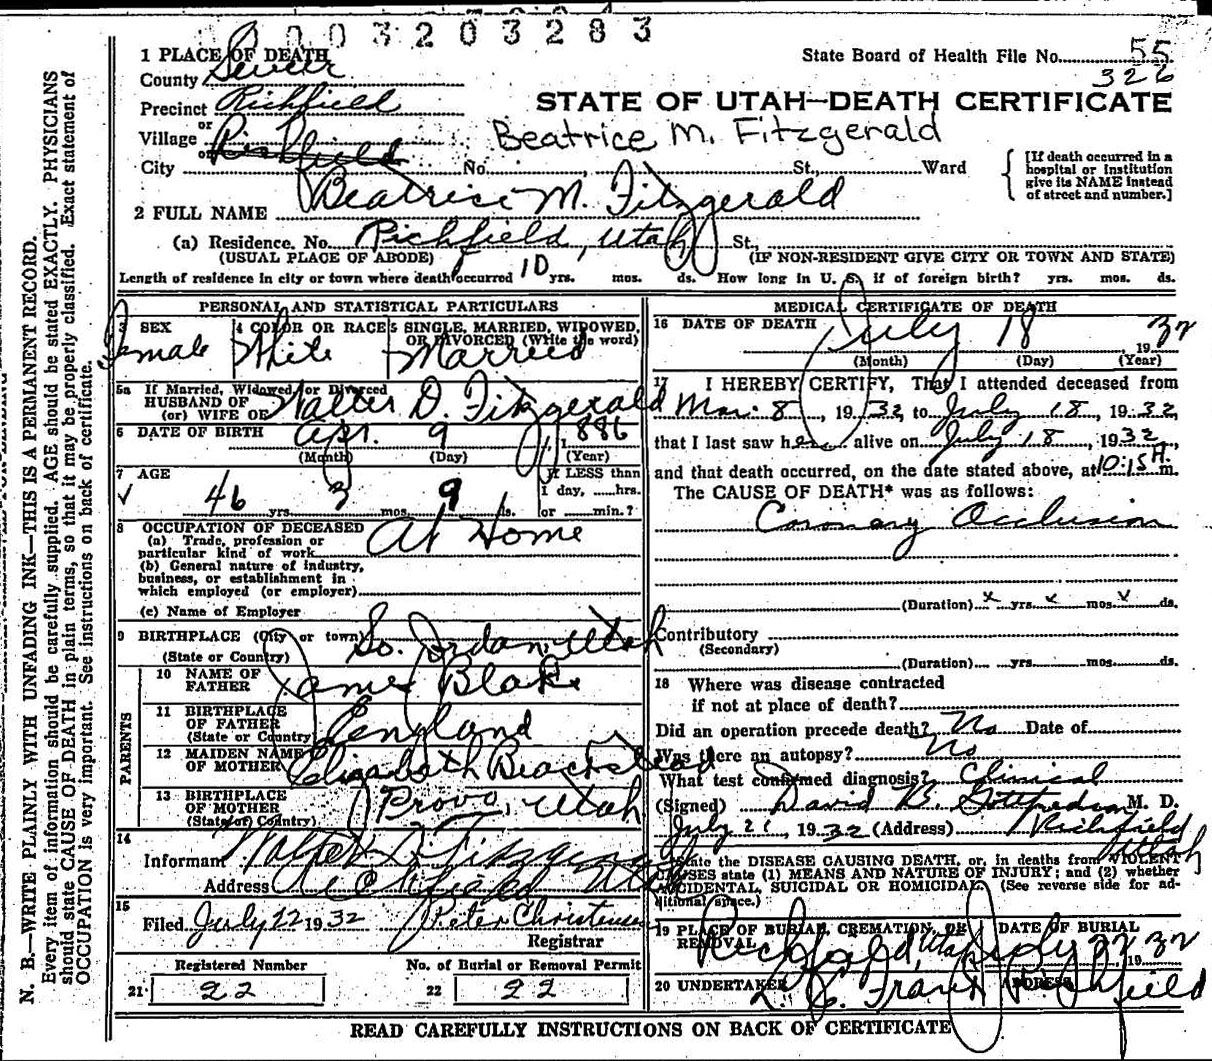 0003203283
1 PLACE OF DEATH
State Board of Health File No. 55
County Sevier
326
Precinct Richfield
STATE OF UTAH—DEATH CERTIFICATE
or
Village Richfield
Beatrice M. Fitzgerald
or
City No. St., Ward
[If death occurred in a hospital or institution give its NAME instead of street and number.]
2 FULL NAME Beatrice M. Fitzgerald
(a) Residence. No. Richfield, Utah St.,
(USUAL PLACE OF ABODE) (IF NON-RESIDENT GIVE CITY OR TOWN AND STATE)
Length of residence in city or town where death occurred 10 yrs. mos. ds. How long in U. S. if of foreign birth? yrs. mos. ds.
PERSONAL AND STATISTICAL PARTICULARS
3 SEX 4 COLOR OR RACE 5 SINGLE, MARRIED, WIDOWED, OR DIVORCED (Write the word)
Female White Married
5a If Married, Widowed, or Divorced
HUSBAND OF
(or) WIFE OF Walter D. Fitzgerald
6 DATE OF BIRTH Apr. 9 1886
(Month) (Day) (Year)
7 AGE If LESS than
46 yrs. 3 mos. 9 ds. 1 day, hrs. or min.?
8 OCCUPATION OF DECEASED
(a) Trade, profession or particular kind of work At Home
(b) General nature of industry, business, or establishment in which employed (or employer)
(c) Name of Employer
9 BIRTHPLACE (City or town) So. Jordan, Utah
(State or Country)
PARENTS
10 NAME OF FATHER James Blake
11 BIRTHPLACE OF FATHER England
(State or Country)
12 MAIDEN NAME OF MOTHER Elizabeth Beckstead
13 BIRTHPLACE OF MOTHER Provo, Utah
(State or Country)
14
Informant Walter D. Fitzgerald
Address Richfield Utah
15
Filed July 22 1932 Peter Christensen
Registrar
Registered Number No. of Burial or Removal Permit
21 22 22 22
MEDICAL CERTIFICATE OF DEATH
16 DATE OF DEATH July 18 1932
(Month) (Day) (Year)
17 I HEREBY CERTIFY, That I attended deceased from
Mar. 8, 1932, to July 18, 1932,
that I last saw her alive on July 18, 1932,
and that death occurred, on the date stated above, at 10:15 A. m.
The CAUSE OF DEATH* was as follows:
Coronary Occlusion
(Duration) x yrs. x mos. x ds.
Contributory
(Secondary)
(Duration) yrs. mos. ds.
18 Where was disease contracted
if not at place of death?
Did an operation precede death? No Date of
Was there an autopsy? No
What test confirmed diagnosis? Clinical
(Signed) David B. Gottfredson M. D.
July 21, 1932 (Address) Richfield Utah
*State the DISEASE CAUSING DEATH, or, in deaths from VIOLENT
CAUSES state (1) MEANS AND NATURE OF INJURY; and (2) whether
ACCIDENTAL, SUICIDAL OR HOMICIDAL. (See reverse side for additional space.)
19 PLACE OF BURIAL, CREMATION, OR REMOVAL DATE OF BURIAL
Richfield, Utah July 22 1932
20 UNDERTAKER ADDRESS
Richfield
READ CAREFULLY INSTRUCTIONS ON BACK OF CERTIFICATE
N. B.—WRITE PLAINLY WITH UNFADING INK—THIS IS A PERMANENT RECORD.
Every item of information should be carefully supplied. AGE should be stated EXACTLY. PHYSICIANS
should state CAUSE OF DEATH in plain terms, so that it may be properly classified. Exact statement of
OCCUPATION is very important. See instructions on back of certificate.